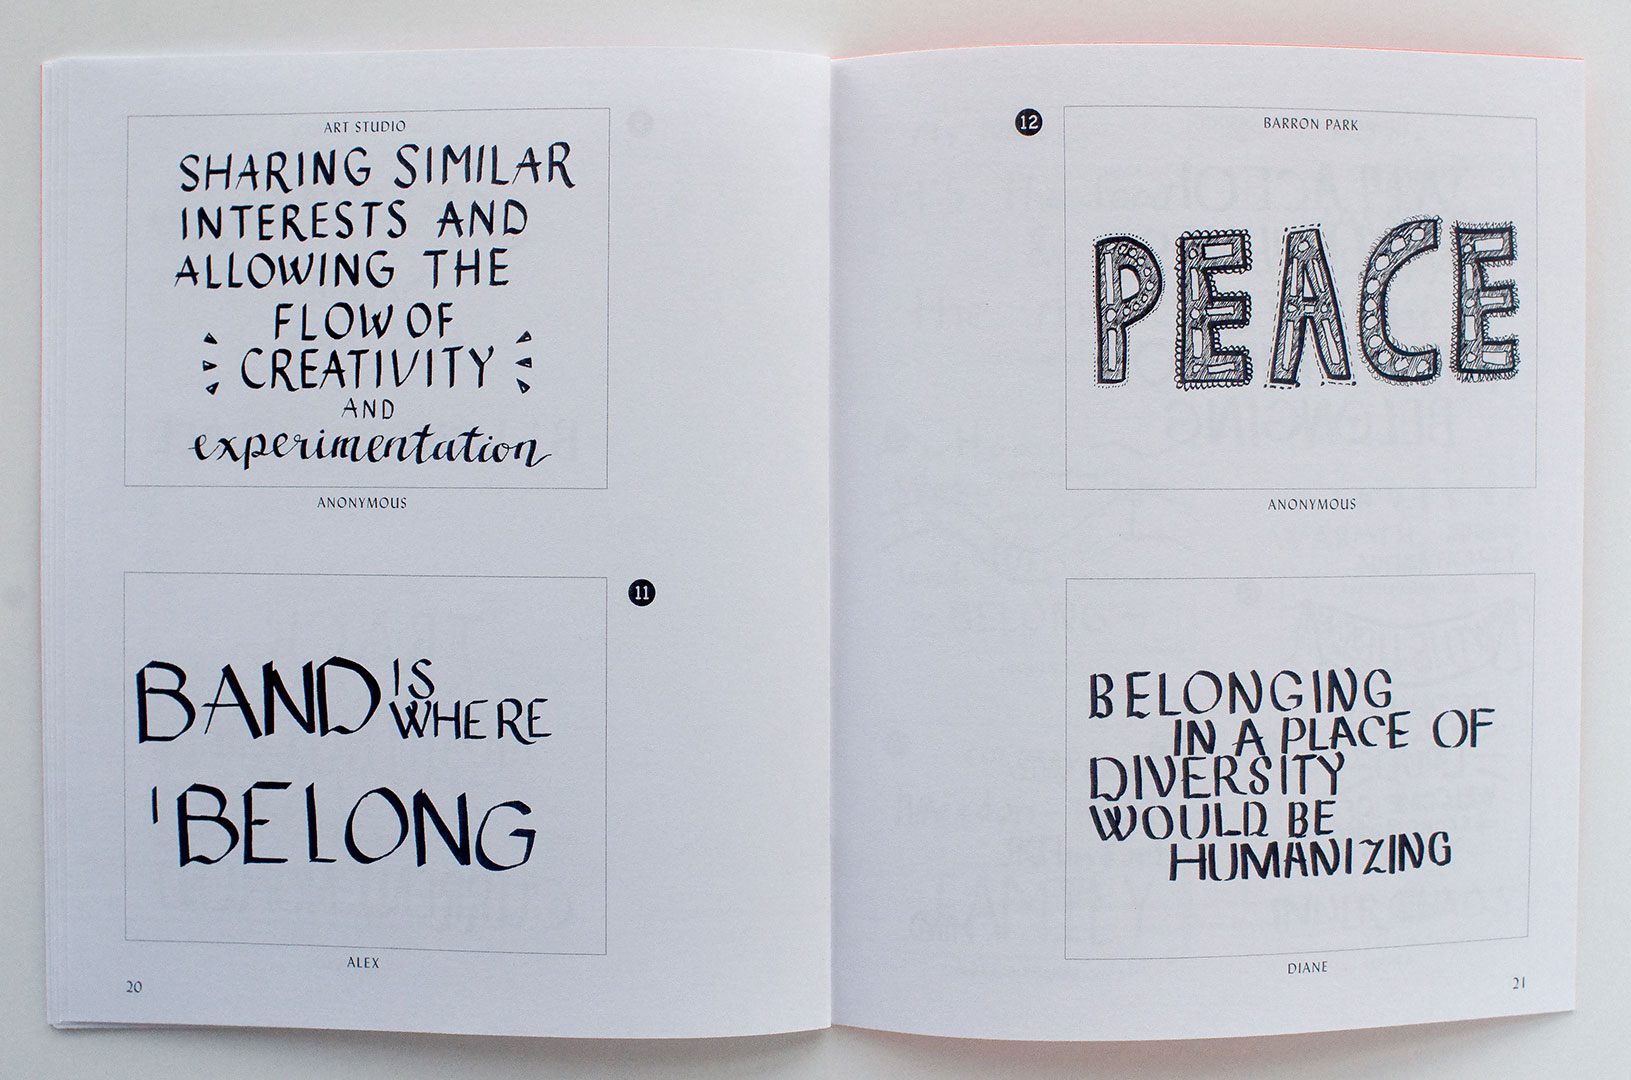 ART STUDIO
SHARING SIMILAR
INTERESTS AND
ALLOWING THE
FLOW OF
CREATIVITY
AND
experimentation
ANONYMOUS
11
BAND IS
WHERE
I BELONG
ALEX
20
12
BARRON PARK
PEACE
ANONYMOUS
BELONGING
IN A PLACE OF
DIVERSITY
WOULD BE
HUMANIZING
DIANE
21